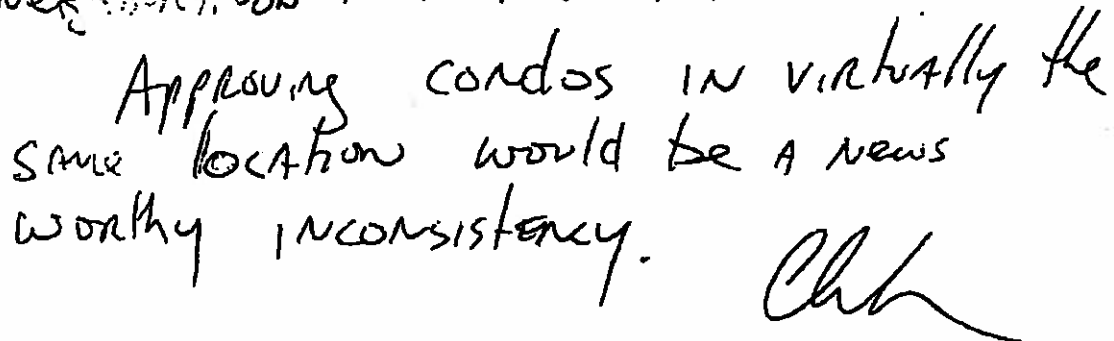 Approving condos in virtually the
same location would be a news
worthy inconsistency.